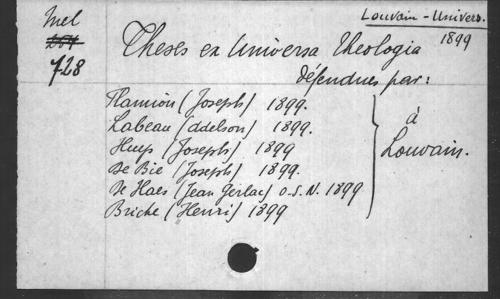 Mel
728
Louvain - Univers.
1899
Theses ex Universa Theologia
défendues par:
Flamion (Joseph) 1899.
Labeau (Odelson) 1899.
Huys (Joseph) 1899
De Bie (Joseph) 1899.
De Haes (Jean Gerlac) O.S.N. 1899
Briche (Henri) 1899
à
Louvain.